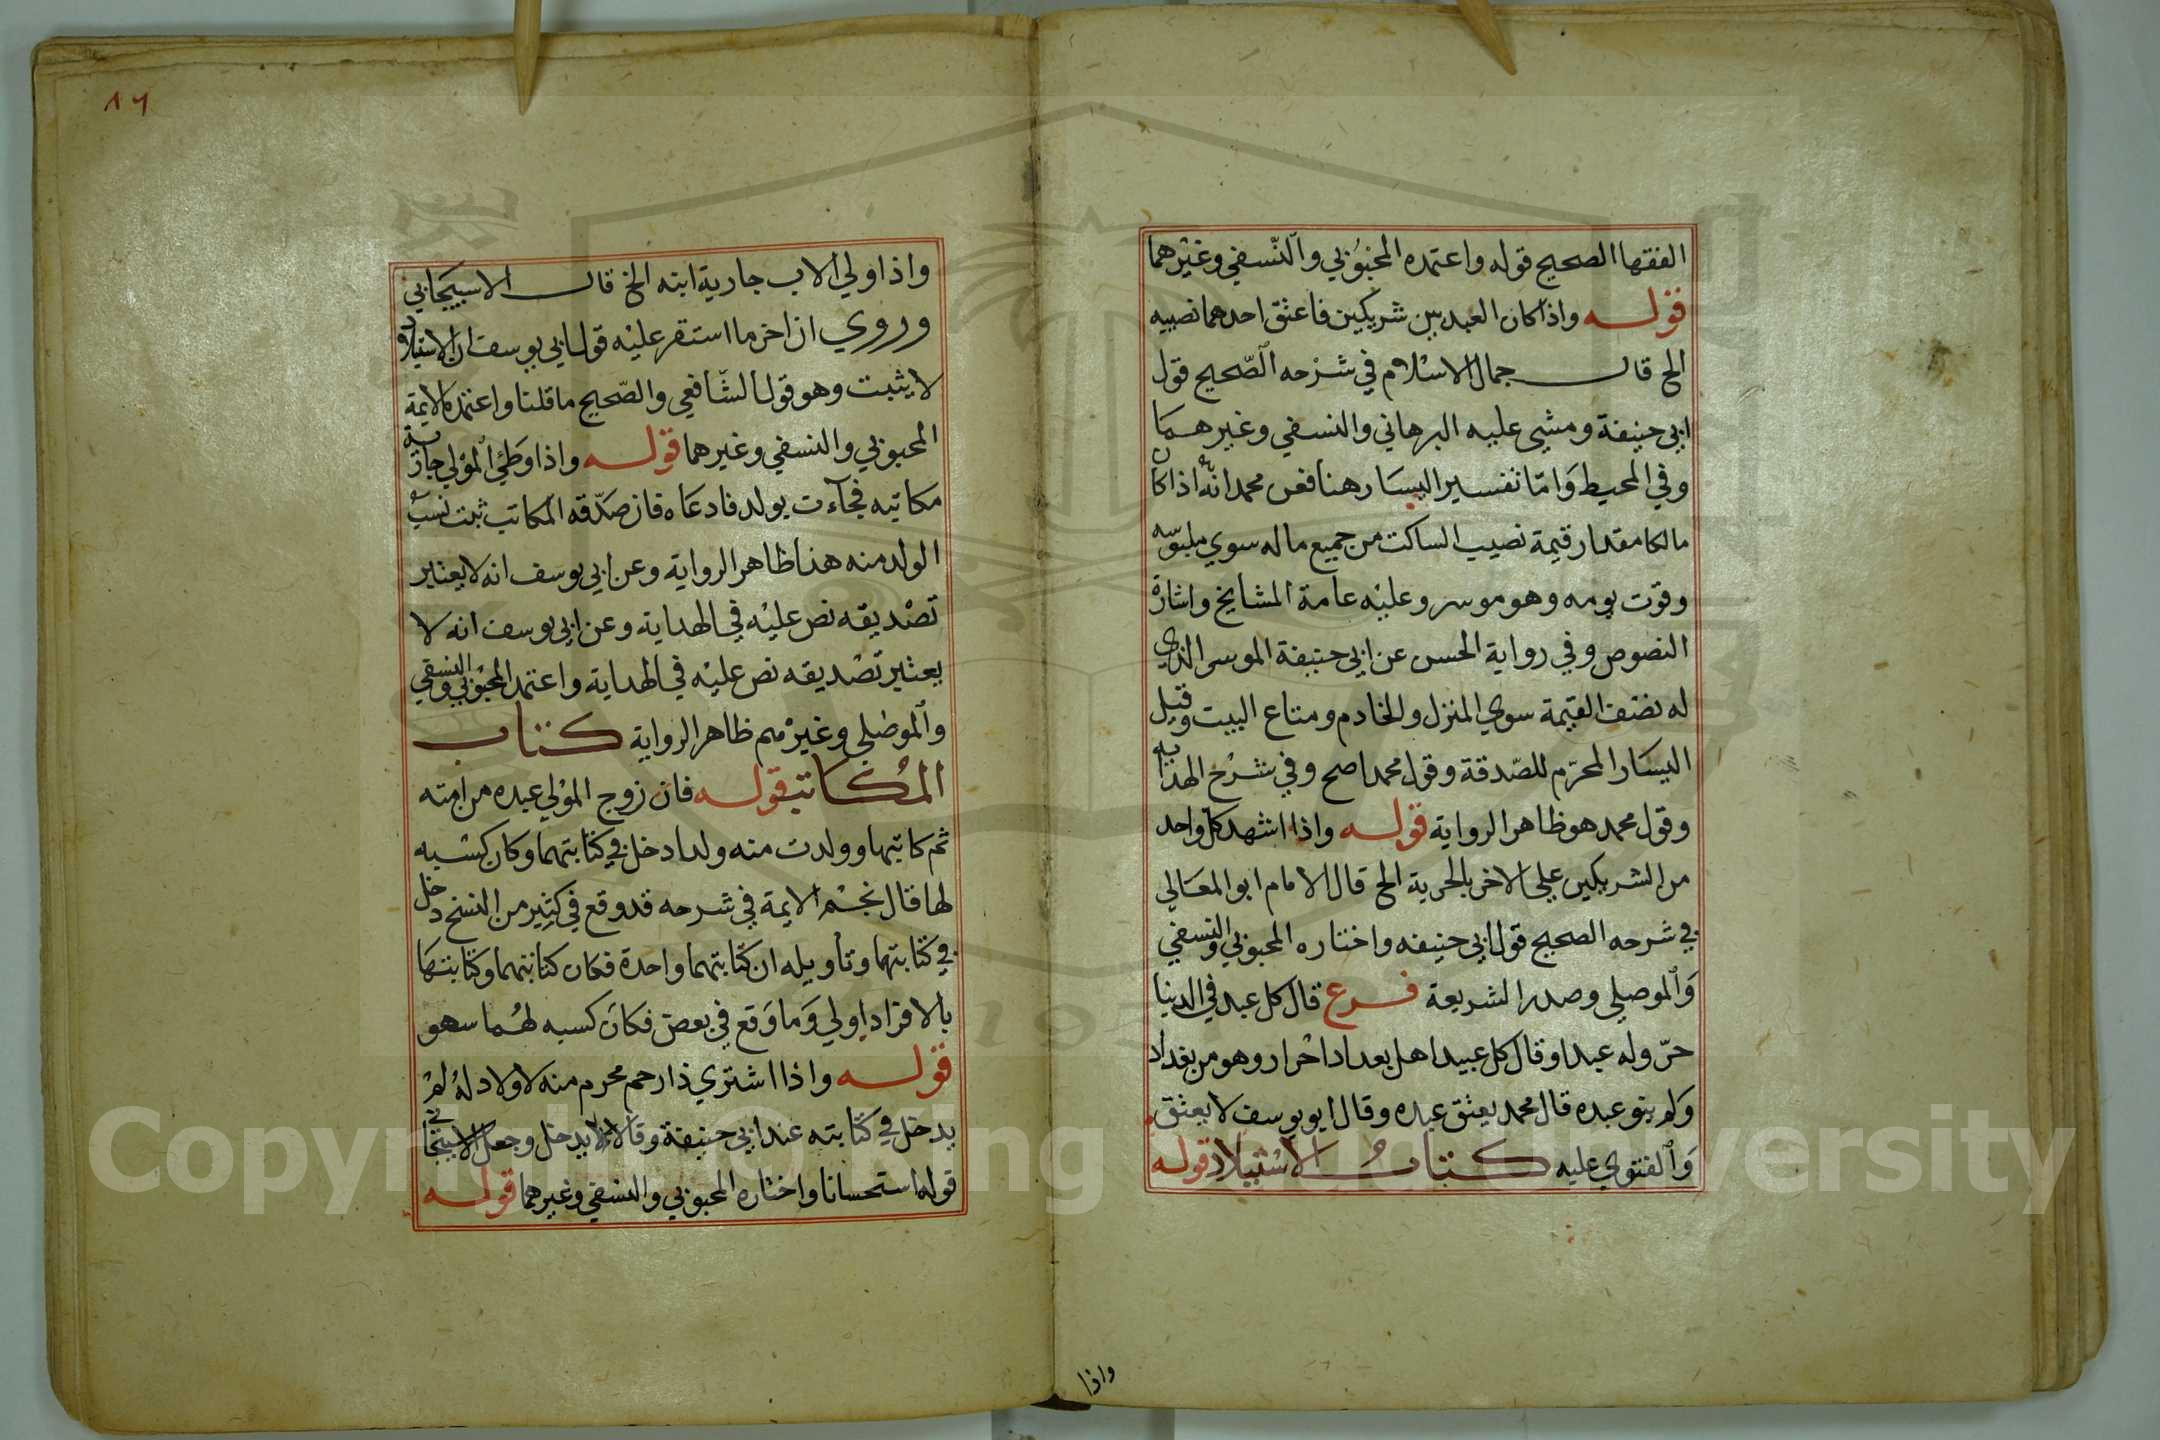 الفقها الصحيح قوله واعتمده المحبوبي والنسفي وغيرهما
قوله واذا كان العبد بين شريكين فاعتق احدهما نصيبه
الخ قال جمال الاسلام في شرحه الصحيح قول
ابي حنيفة ومشي عليه البرهاني والنسفي وغيرهما
وفي المحيط واما تفسير اليسار هنا فعن محمد انه اذا كان
مالكا مقدار قيمة نصيب الساكت من جميع ماله سوي ملبوسه
وقوت يومه وهو موسر وعليه عامة المشايخ واشارة
النصوص وفي رواية الحسن عن ابي حنيفة الموسر الذي
له نصف القيمة سوي المنزل والخادم ومتاع البيت وقيل
اليسار المحرم للصدقة وقول محمد اصح وفي شرح الهداية
وقول محمد هو ظاهر الرواية قوله واذا اشهد كل واحد
من الشريكين علي الاخر بالحرية الخ قال الامام ابو المعالي
في شرحه الصحيح قول ابي حنيفه واختاره المحبوبي والنسفي
والموصلي وصدر الشريعة فرع قال كل عبد في الدنيا
حر وله عبد او قال كل عبيد اهل بغداد احرار وهو من بغداد
ولم ينو عبده قال محمد يعتق عبده وقال ابو يوسف لا يعتق
والفتوي عليه كتاب الاستيلاد قوله
واذا
١٦
واذا ولي الاب جارية ابنه الخ قال الاسبيجابي
وروي ان اخر ما استقر عليه قول ابي يوسف ان الاستيلاد
لا يثبت وهو قول الشافعي والصحيح ما قلنا واعتمده الايمة
المحبوبي والنسفي وغيرهما قوله واذا وطئ المولي جارية
مكاتبه فجآءت بولد فادعاه فان صدقه المكاتب ثبت نسب
الولد منه هذا ظاهر الرواية وعن ابي يوسف انه لا يعتبر
تصديقه نص عليه في الهداية وعن ابي يوسف انه لا
يعتبر تصديقه نص عليه في الهداية واعتمد المحبوبي والنسفي
والموصلي وغيرهم ظاهر الرواية كتاب
المكاتب قوله فان زوج المولي عبده من امته
ثم كاتبها وولدت منه ولدا دخل في كتابتهما وكان كسبه
لها قال نجم الايمة في شرحه قد وقع في كثير من النسخ دخل
في كتابتها وتاويله ان كتابتهما واحدة فكان كتابتهما وكتابتها
بالافراد اولي وما وقع في بعض فكان كسبه لهما سهو
قوله واذا اشتري ذا رحم محرم منه لا ولاد له لم
يدخل في كتابته عند ابي حنيفة وقالا يدخل وجعل الاسبيجابي
قوله استحسانا واختاره المحبوبي والنسفي وغيرهما قوله
Copyright © King Saud University